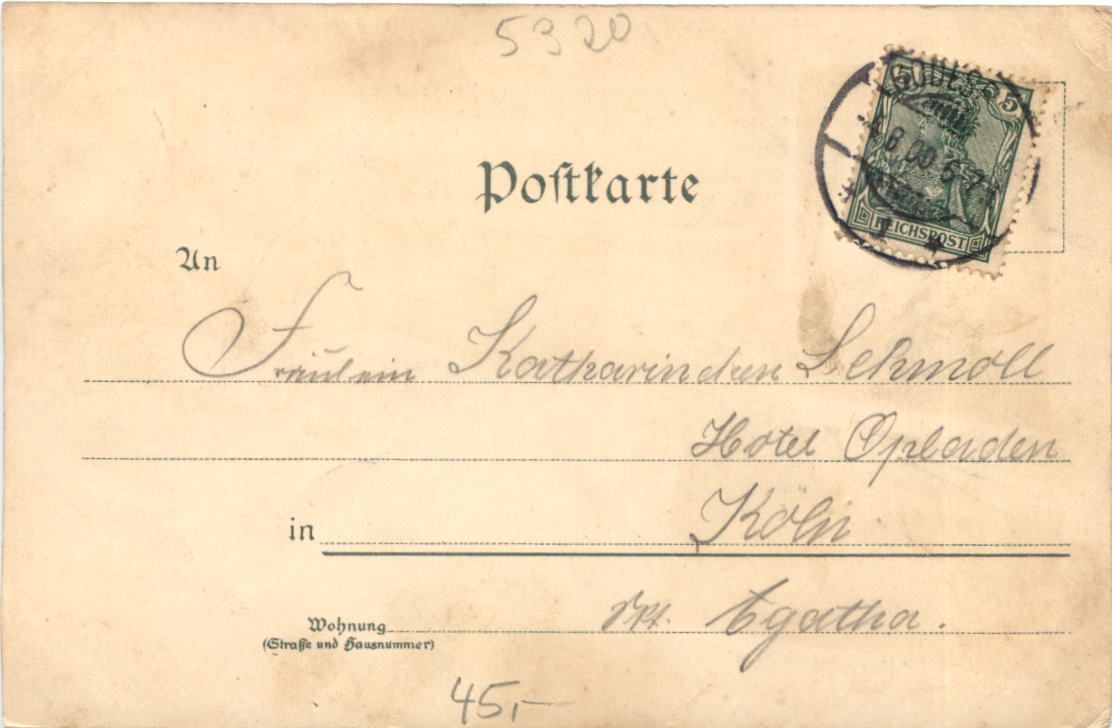 5320
5 5
GODESB
-4.8.00.6-7
REICHSPOST
Postkarte
An
Fräulein Katharinchen Schmoll
Hotel Opladen
in Köln
Skt. Agatha.
Wohnung
(Straße und Hausnummer)
45,-